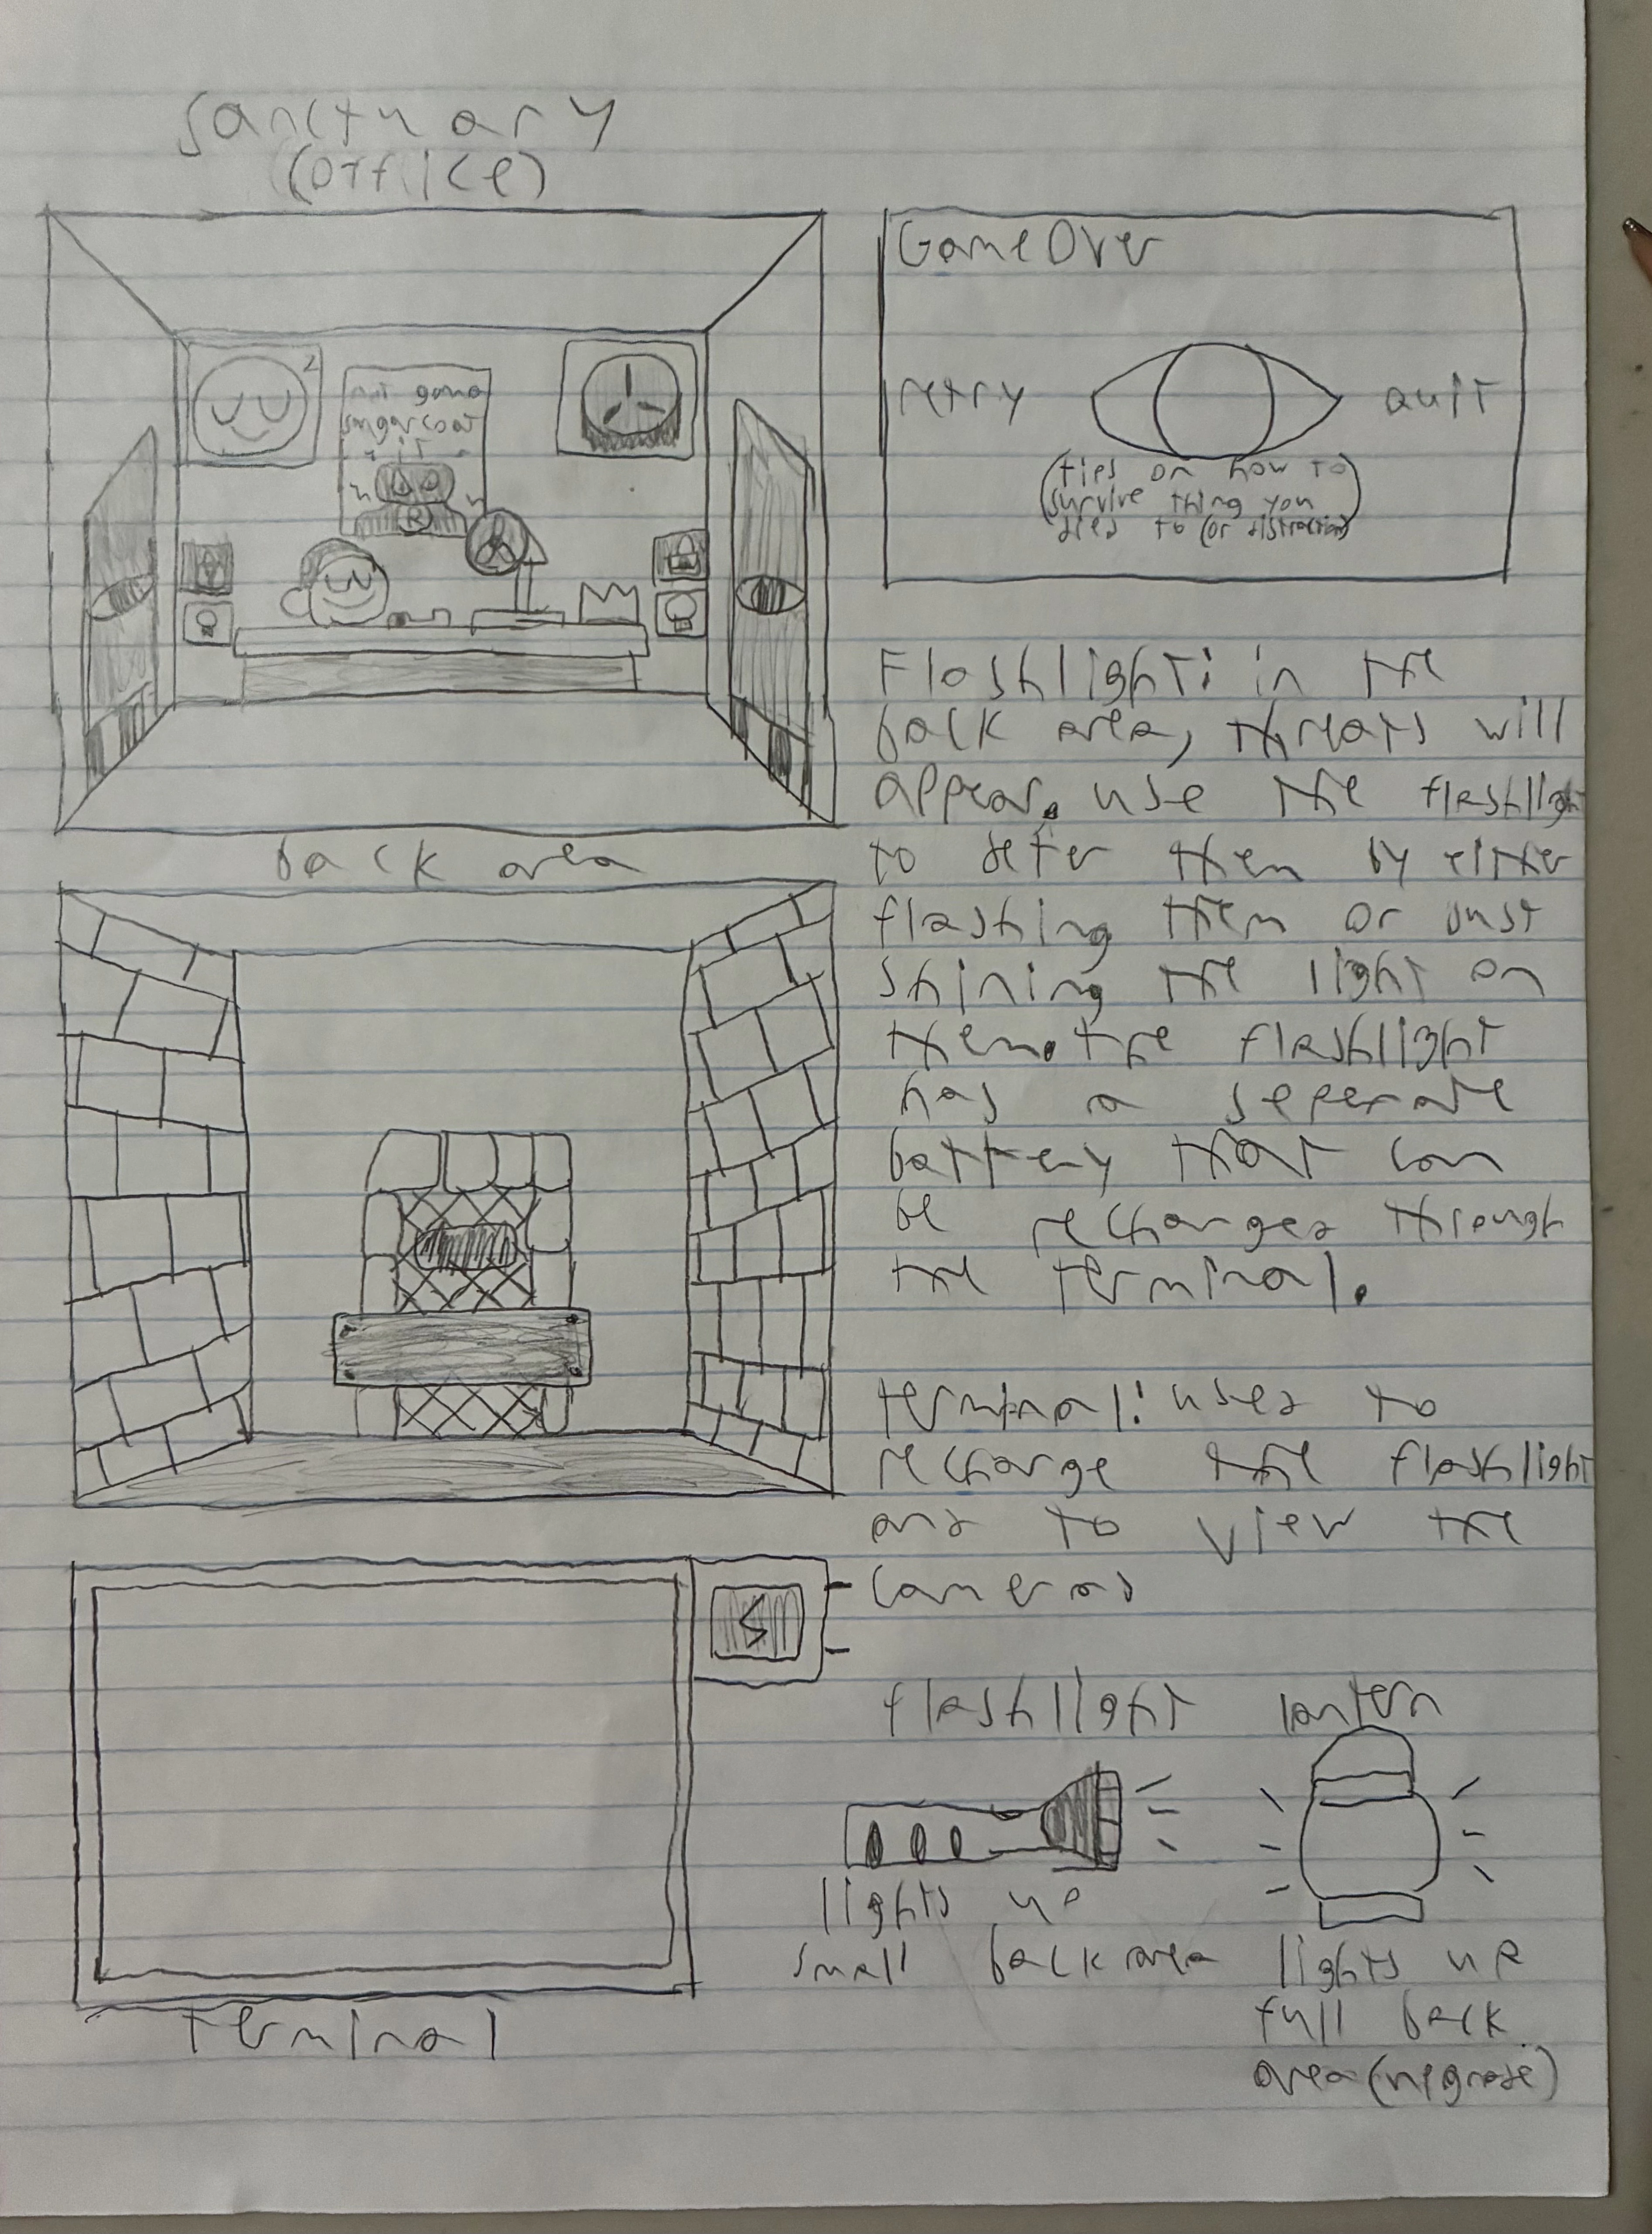 Sanctuary
(office)
not gona
sugarcoat
it
R
z
Game Over
retry
quit
(tips on how to
survive thing you
died to (or distraction)
Flashlight: in the
back area, threats will
appear. use the flashlight
to deter them by either
flashing them or just
shining the light on
them. the flashlight
has a seperate
battery that can
be recharged through
the terminal.
back area
terminal: used to
recharge the flashlight
and to view the
cameras
terminal
flashlight
lights up
small back area
lantern
lights up
full back
area (upgrade)